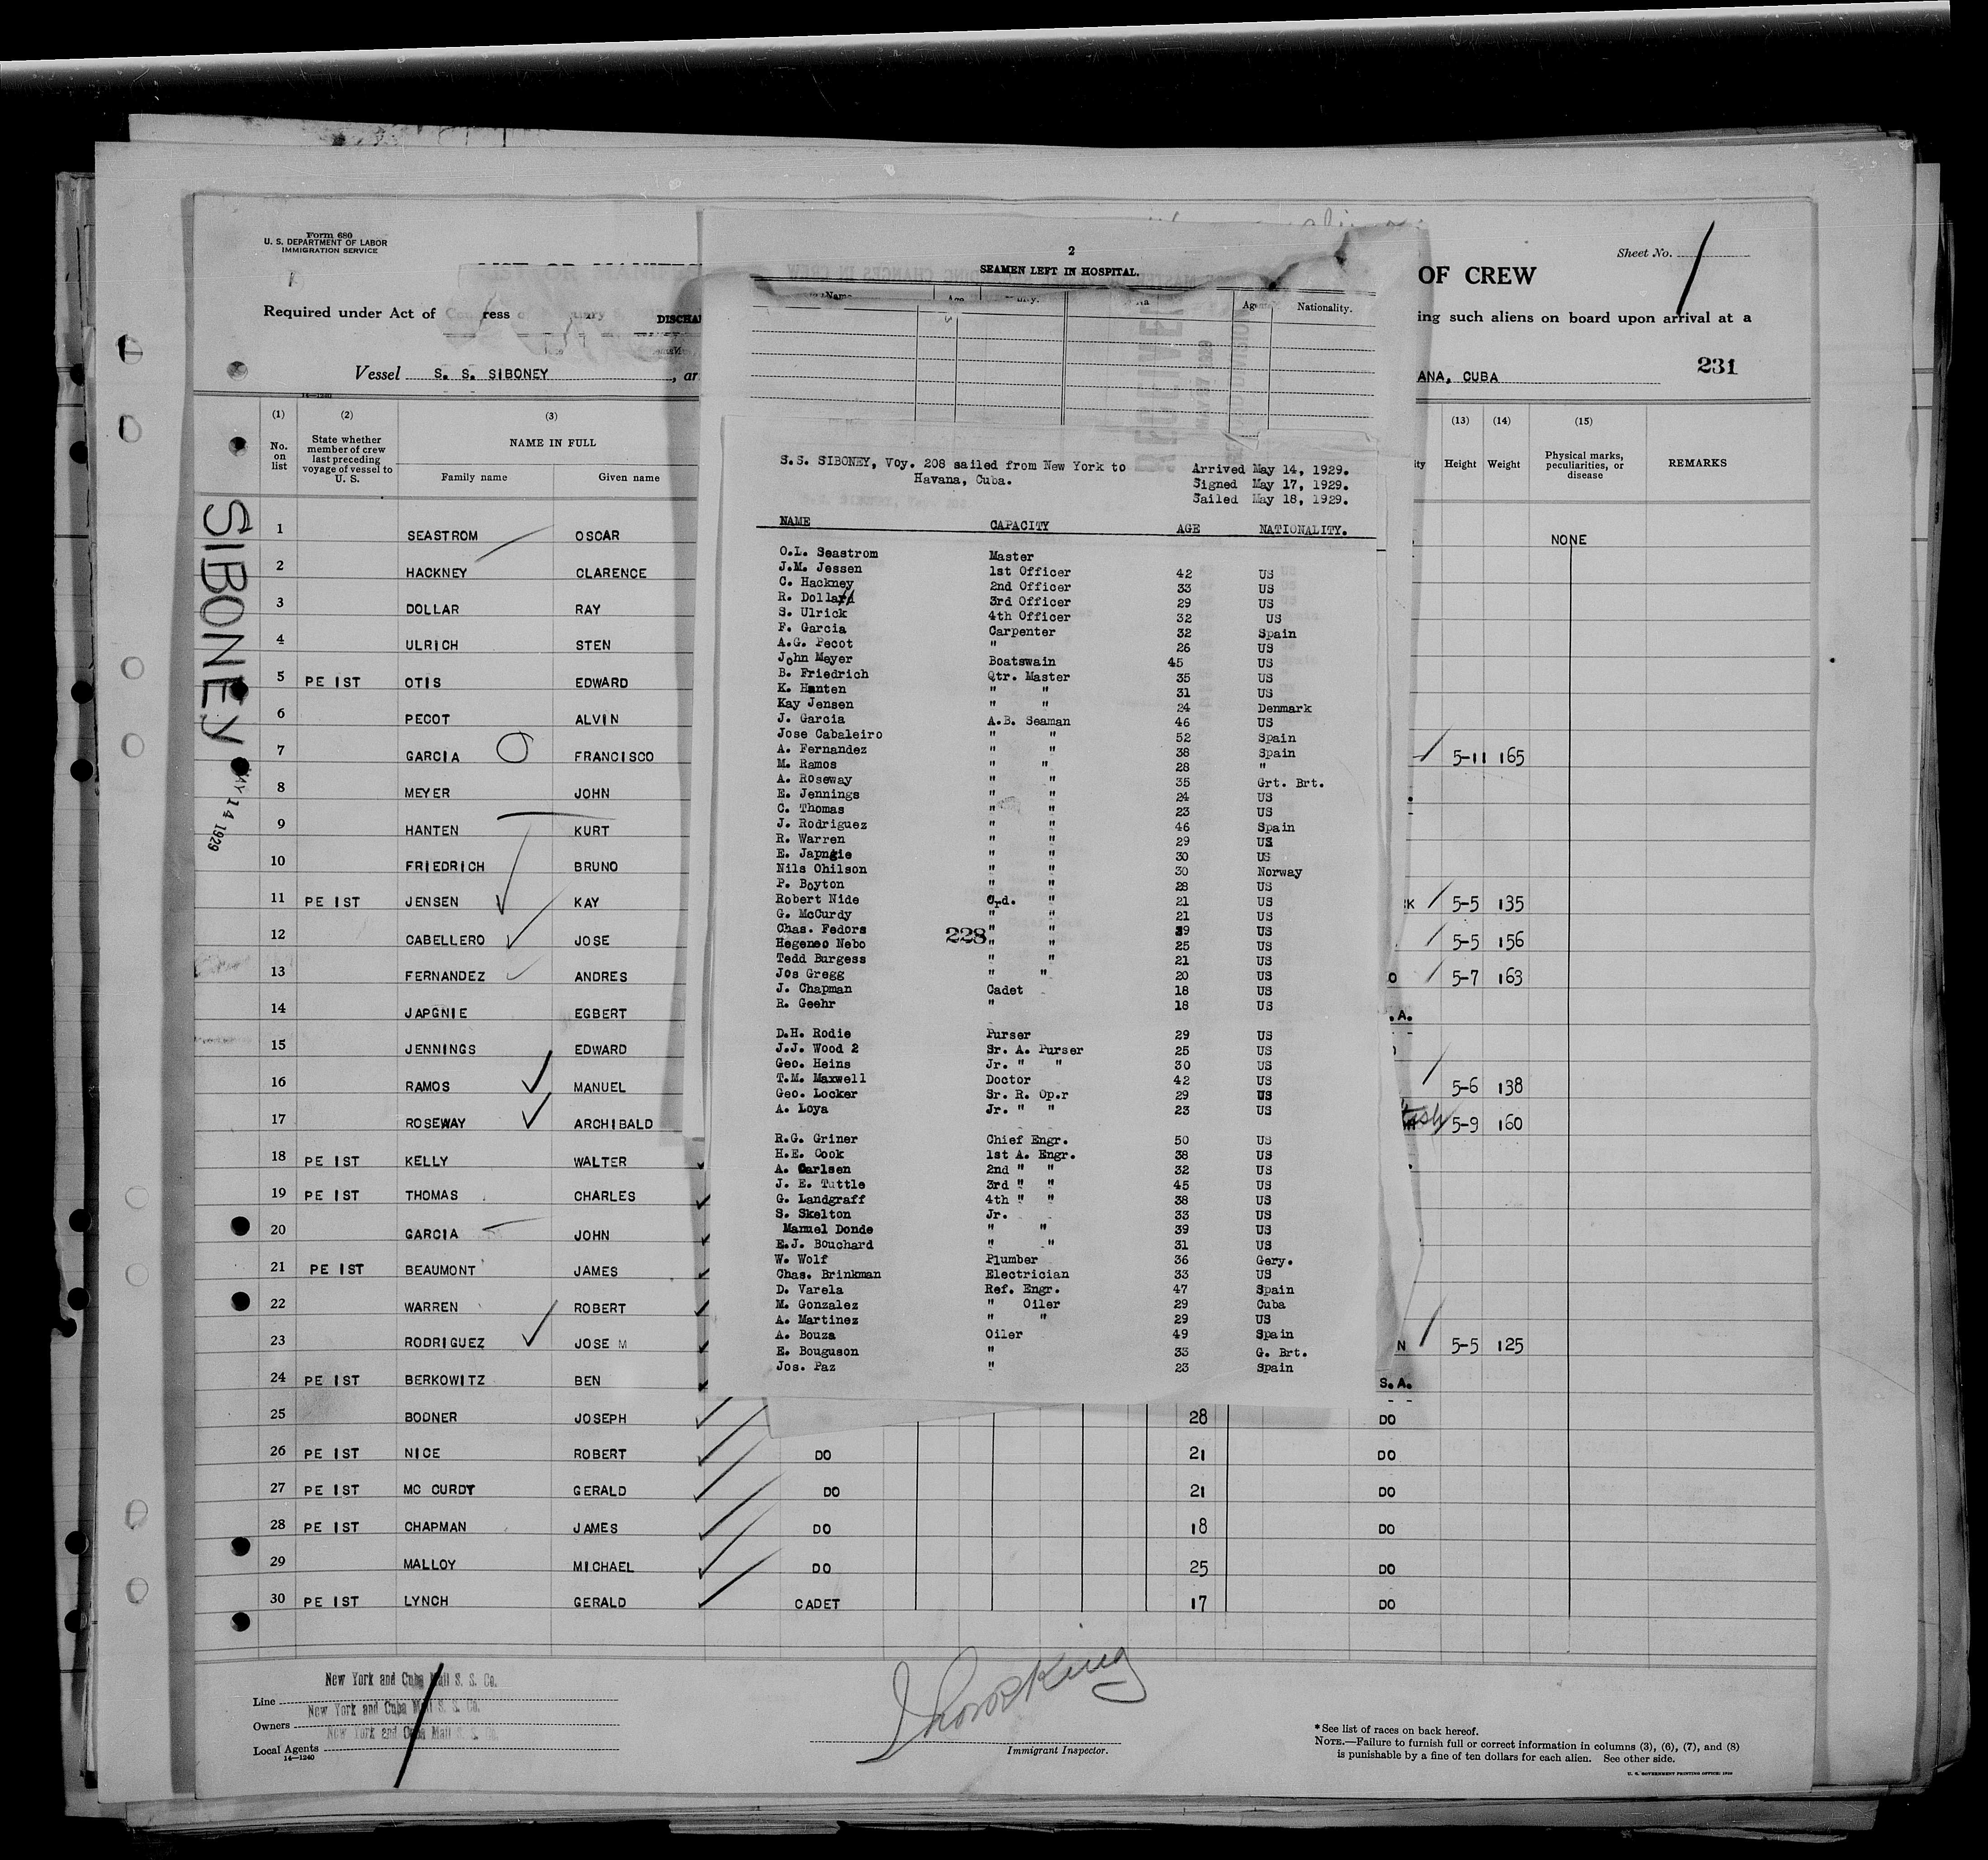 Form 680
U. S. DEPARTMENT OF LABOR
IMMIGRATION SERVICE
LIST OR MANIFE
OF CREW
Sheet No. 1
Required under Act of
DISCHA
ing such aliens on board upon arrival at a
Vessel S. S. SIBONEY, ar
ANA, CUBA
231
14-1240
(1) (2) (3) (13) (14) (15)
No. on list
State whether member of crew last preceding voyage of vessel to U. S.
NAME IN FULL
Family name Given name
Height Weight
Physical marks, peculiarities, or disease
REMARKS
SIBONEY
MAY 14 1929
1 SEASTROM OSCAR NONE
2 HACKNEY CLARENCE
3 DOLLAR RAY
4 ULRICH STEN
5 PE IST OTIS EDWARD
6 PECOT ALVIN
7 GARCIA FRANCISCO 5-11 165
8 MEYER JOHN
9 HANTEN KURT
10 FRIEDRICH BRUNO
11 PE IST JENSEN KAY RK 5-5 135
12 CABELLERO JOSE 5-5 156
13 FERNANDEZ ANDRES O 5-7 163
14 JAPGNIE EGBERT . A.
15 JENNINGS EDWARD
16 RAMOS MANUEL 5-6 138
17 ROSEWAY ARCHIBALD 5-9 160
18 PE IST KELLY WALTER
19 PE IST THOMAS CHARLES
20 GARCIA JOHN
21 PE IST BEAUMONT JAMES
22 WARREN ROBERT
23 RODRIGUEZ JOSE M N 5-5 125
24 PE IST BERKOWITZ BEN S.A.
25 BODNER JOSEPH 28 DO
26 PE IST NICE ROBERT DO 21 DO
27 PE IST MC CURDY GERALD DO 21 DO
28 PE IST CHAPMAN JAMES DO 18 DO
29 MALLOY MICHAEL DO 25 DO
30 PE IST LYNCH GERALD CADET 17 DO
2
SEAMEN LEFT IN HOSPITAL.
Name Age Nationality.
S.S. SIBONEY, Voy. 208 sailed from New York to
Havana, Cuba.
Arrived May 14, 1929.
Signed May 17, 1929.
Sailed May 18, 1929.
NAME CAPACITY AGE NATIONALITY.
O.L. Seastrom Master
J.M. Jessen 1st Officer 42 US
C. Hackney 2nd Officer 33 US
R. Dollard 3rd Officer 29 US
S. Ulrick 4th Officer 32 US
F. Garcia Carpenter 32 Spain
A.G. Pecot " 26 US
John Meyer Boatswain 45 US
B. Friedrich Qtr. Master 35 US
K. Hanten " " 31 US
Kay Jensen " " 24 Denmark
J. Garcia A.B. Seaman 46 US
Jose Cabaleiro " " 52 Spain
A. Fernandez " " 38 Spain
M. Ramos " " 28 "
A. Roseway " " 35 Grt. Brt.
E. Jennings " " 24 US
C. Thomas " " 23 US
J. Rodriguez " " 46 Spain
R. Warren " " 29 US
E. Japngie " " 30 US
Nils Ohilson " " 30 Norway
P. Boyton " " 28 US
Robert Nide Ord. " 21 US
G. McCurdy " " 21 US
Chas. Fedors " " 39 US
228
Hegeneo Nebo " " 25 US
Tedd Burgess " " 21 US
Jos Gregg " " 20 US
J. Chapman Cadet 18 US
R. Geehr " 18 US
D.H. Rodie Purser 29 US
J.J. Wood 2 Sr. A. Purser 25 US
Geo. Heins Jr. " " 30 US
T.M. Maxwell Doctor 42 US
Geo. Locker Sr. R. Op.r 29 US
A. Loya Jr. " " 23 US
R.G. Griner Chief Engr. 50 US
H.E. Cook 1st A. Engr. 38 US
A. Carlsen 2nd " " 32 US
J. E. Tuttle 3rd " " 45 US
G. Landgraff 4th " " 38 US
S. Skelton Jr. 33 US
Manuel Donde " " 39 US
E.J. Bouchard " " 31 US
W. Wolf Plumber 36 Gery.
Chas. Brinkman Electrician 33 US
D. Varela Ref. Engr. 47 Spain
M. Gonzalez " Oiler 29 Cuba
A. Martinez " " 29 US
A. Bouza Oiler 49 Spain
E. Bouguson " 33 G. Brt.
Jos. Paz " 23 Spain
Line New York and Cuba Mail S. S. Co.
Owners New York and Cuba Mail S. S. Co.
Local Agents New York and Cuba Mail S. S. Co.
14-1240
Immigrant Inspector.
*See list of races on back hereof.
NOTE.—Failure to furnish full or correct information in columns (3), (6), (7), and (8)
is punishable by a fine of ten dollars for each alien. See other side.
U. S. GOVERNMENT PRINTING OFFICE: 1928